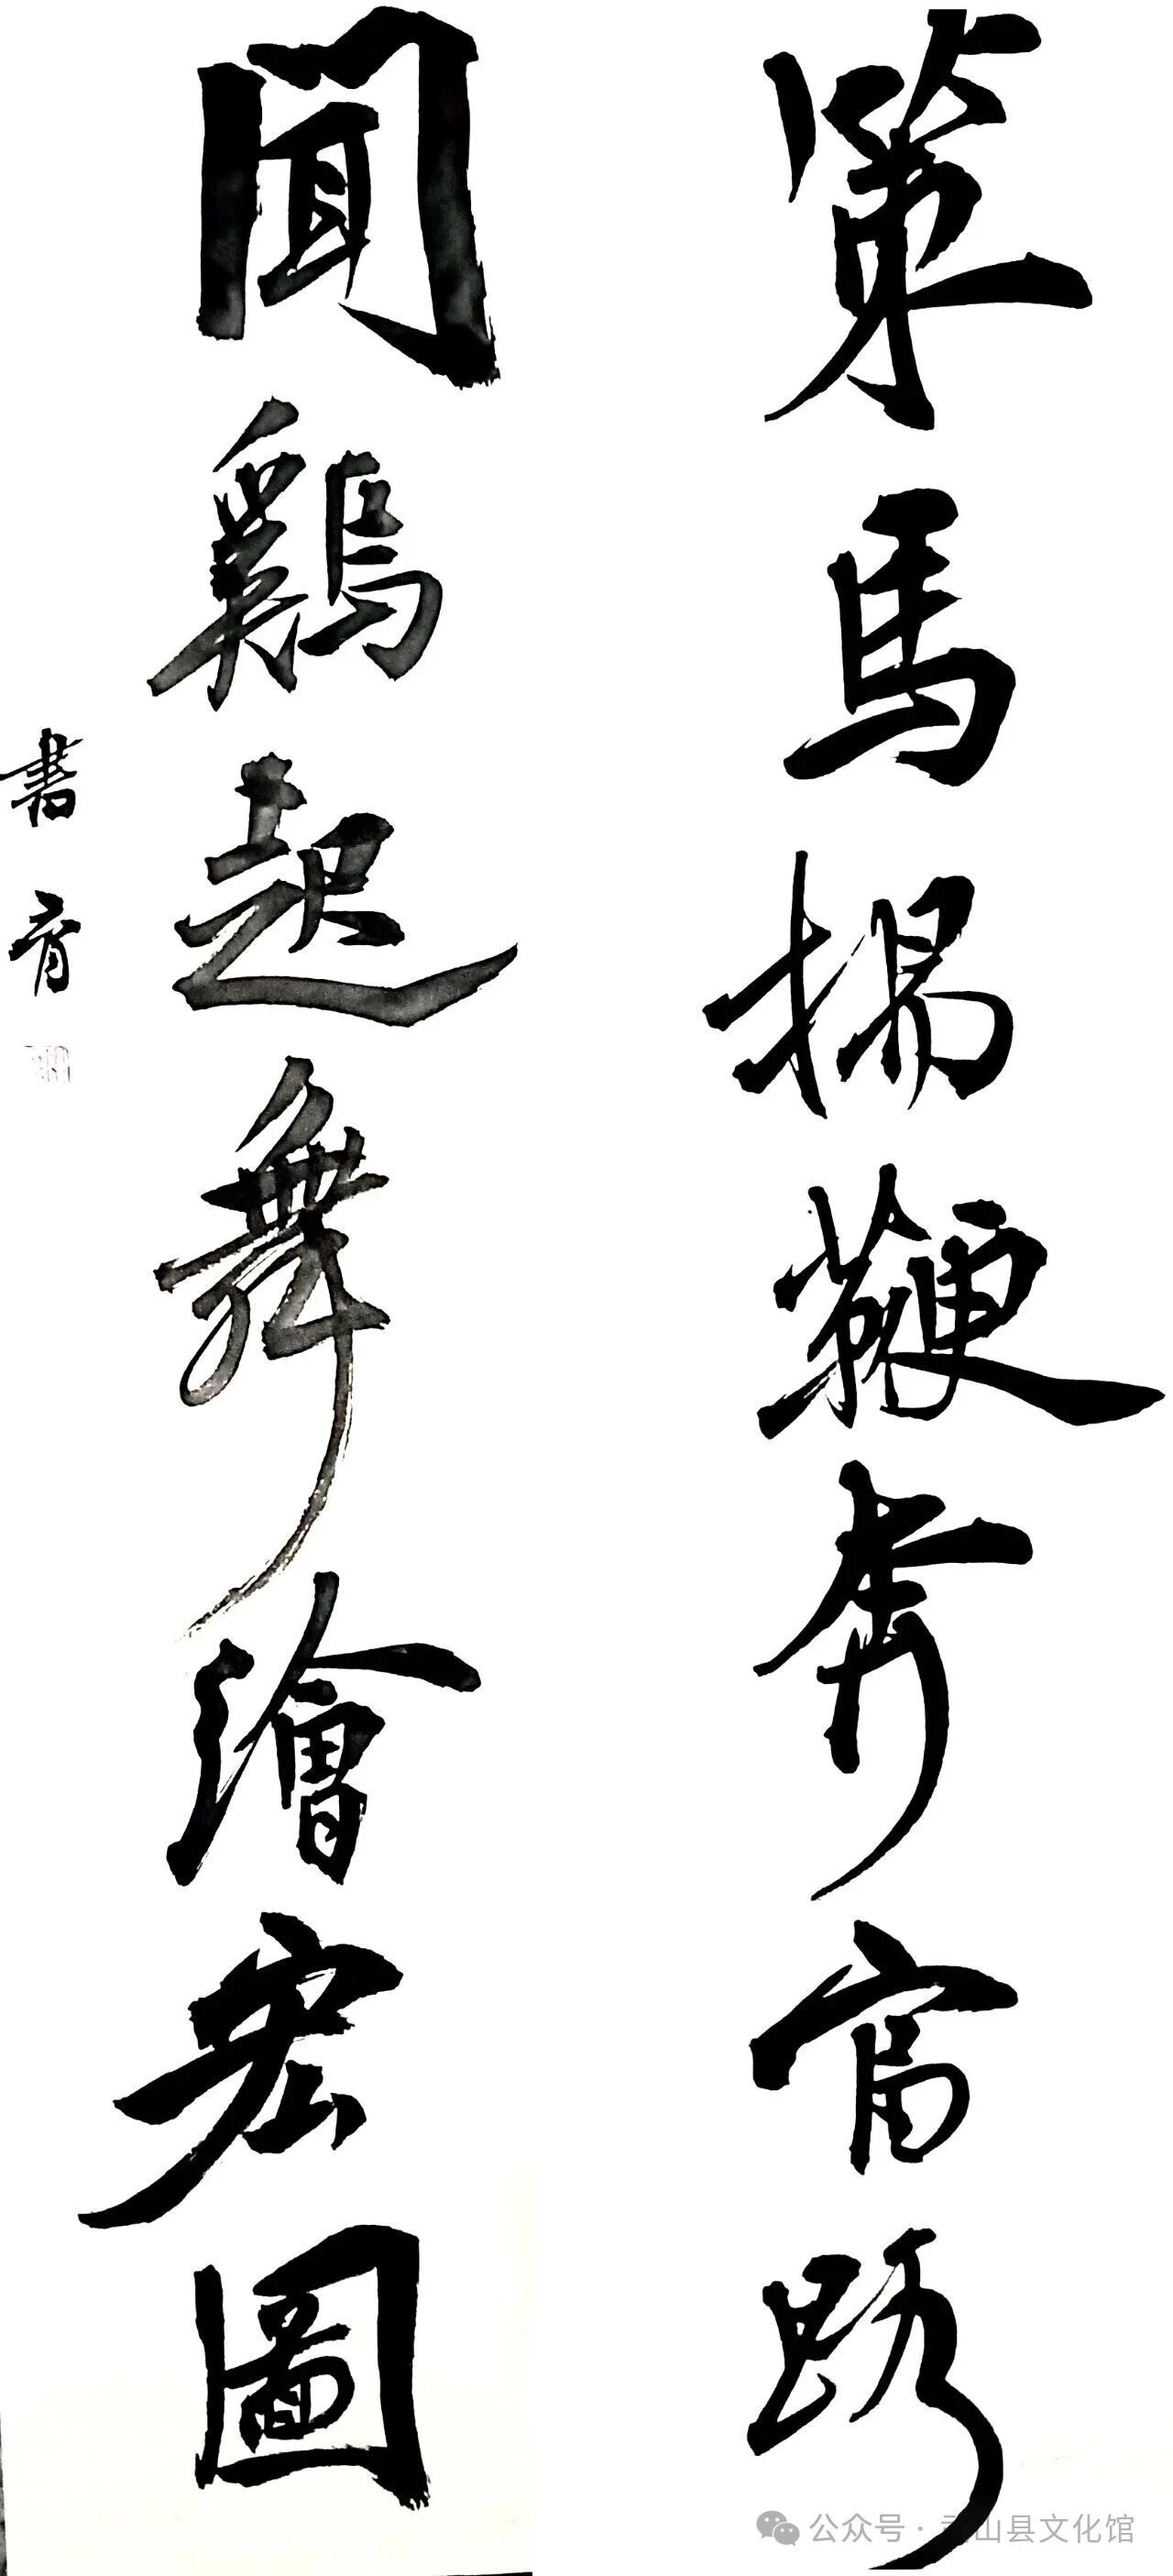 策馬揚鞭奔富路
聞鷄起舞繪宏圖
書育
公众号·山县文化馆